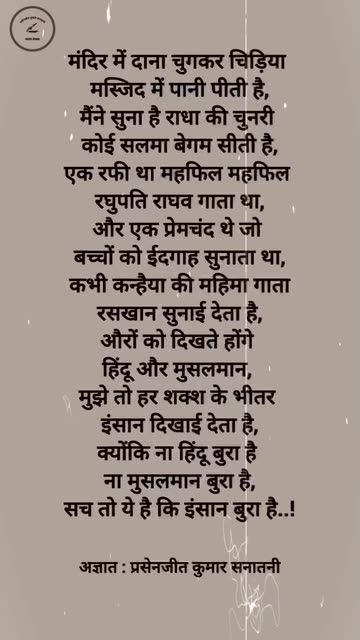 मंदिर में दाना चुगकर चिड़िया
मस्जिद में पानी पीती है,
मैंने सुना है राधा की चुनरी
कोई सलमा बेगम सीती है,
एक रफी था महफिल महफिल
रघुपति राघव गाता था,
और एक प्रेमचंद थे जो
बच्चों को ईदगाह सुनाता था,
कभी कन्हैया की महिमा गाता
रसखान सुनाई देता है,
औरों को दिखते होंगे
हिंदू और मुसलमान,
मुझे तो हर शक्श के भीतर
इंसान दिखाई देता है,
क्योंकि ना हिंदू बुरा है
ना मुसलमान बुरा है,
सच तो ये है कि इंसान बुरा है..!
अज्ञात : प्रसेनजीत कुमार सनातनी